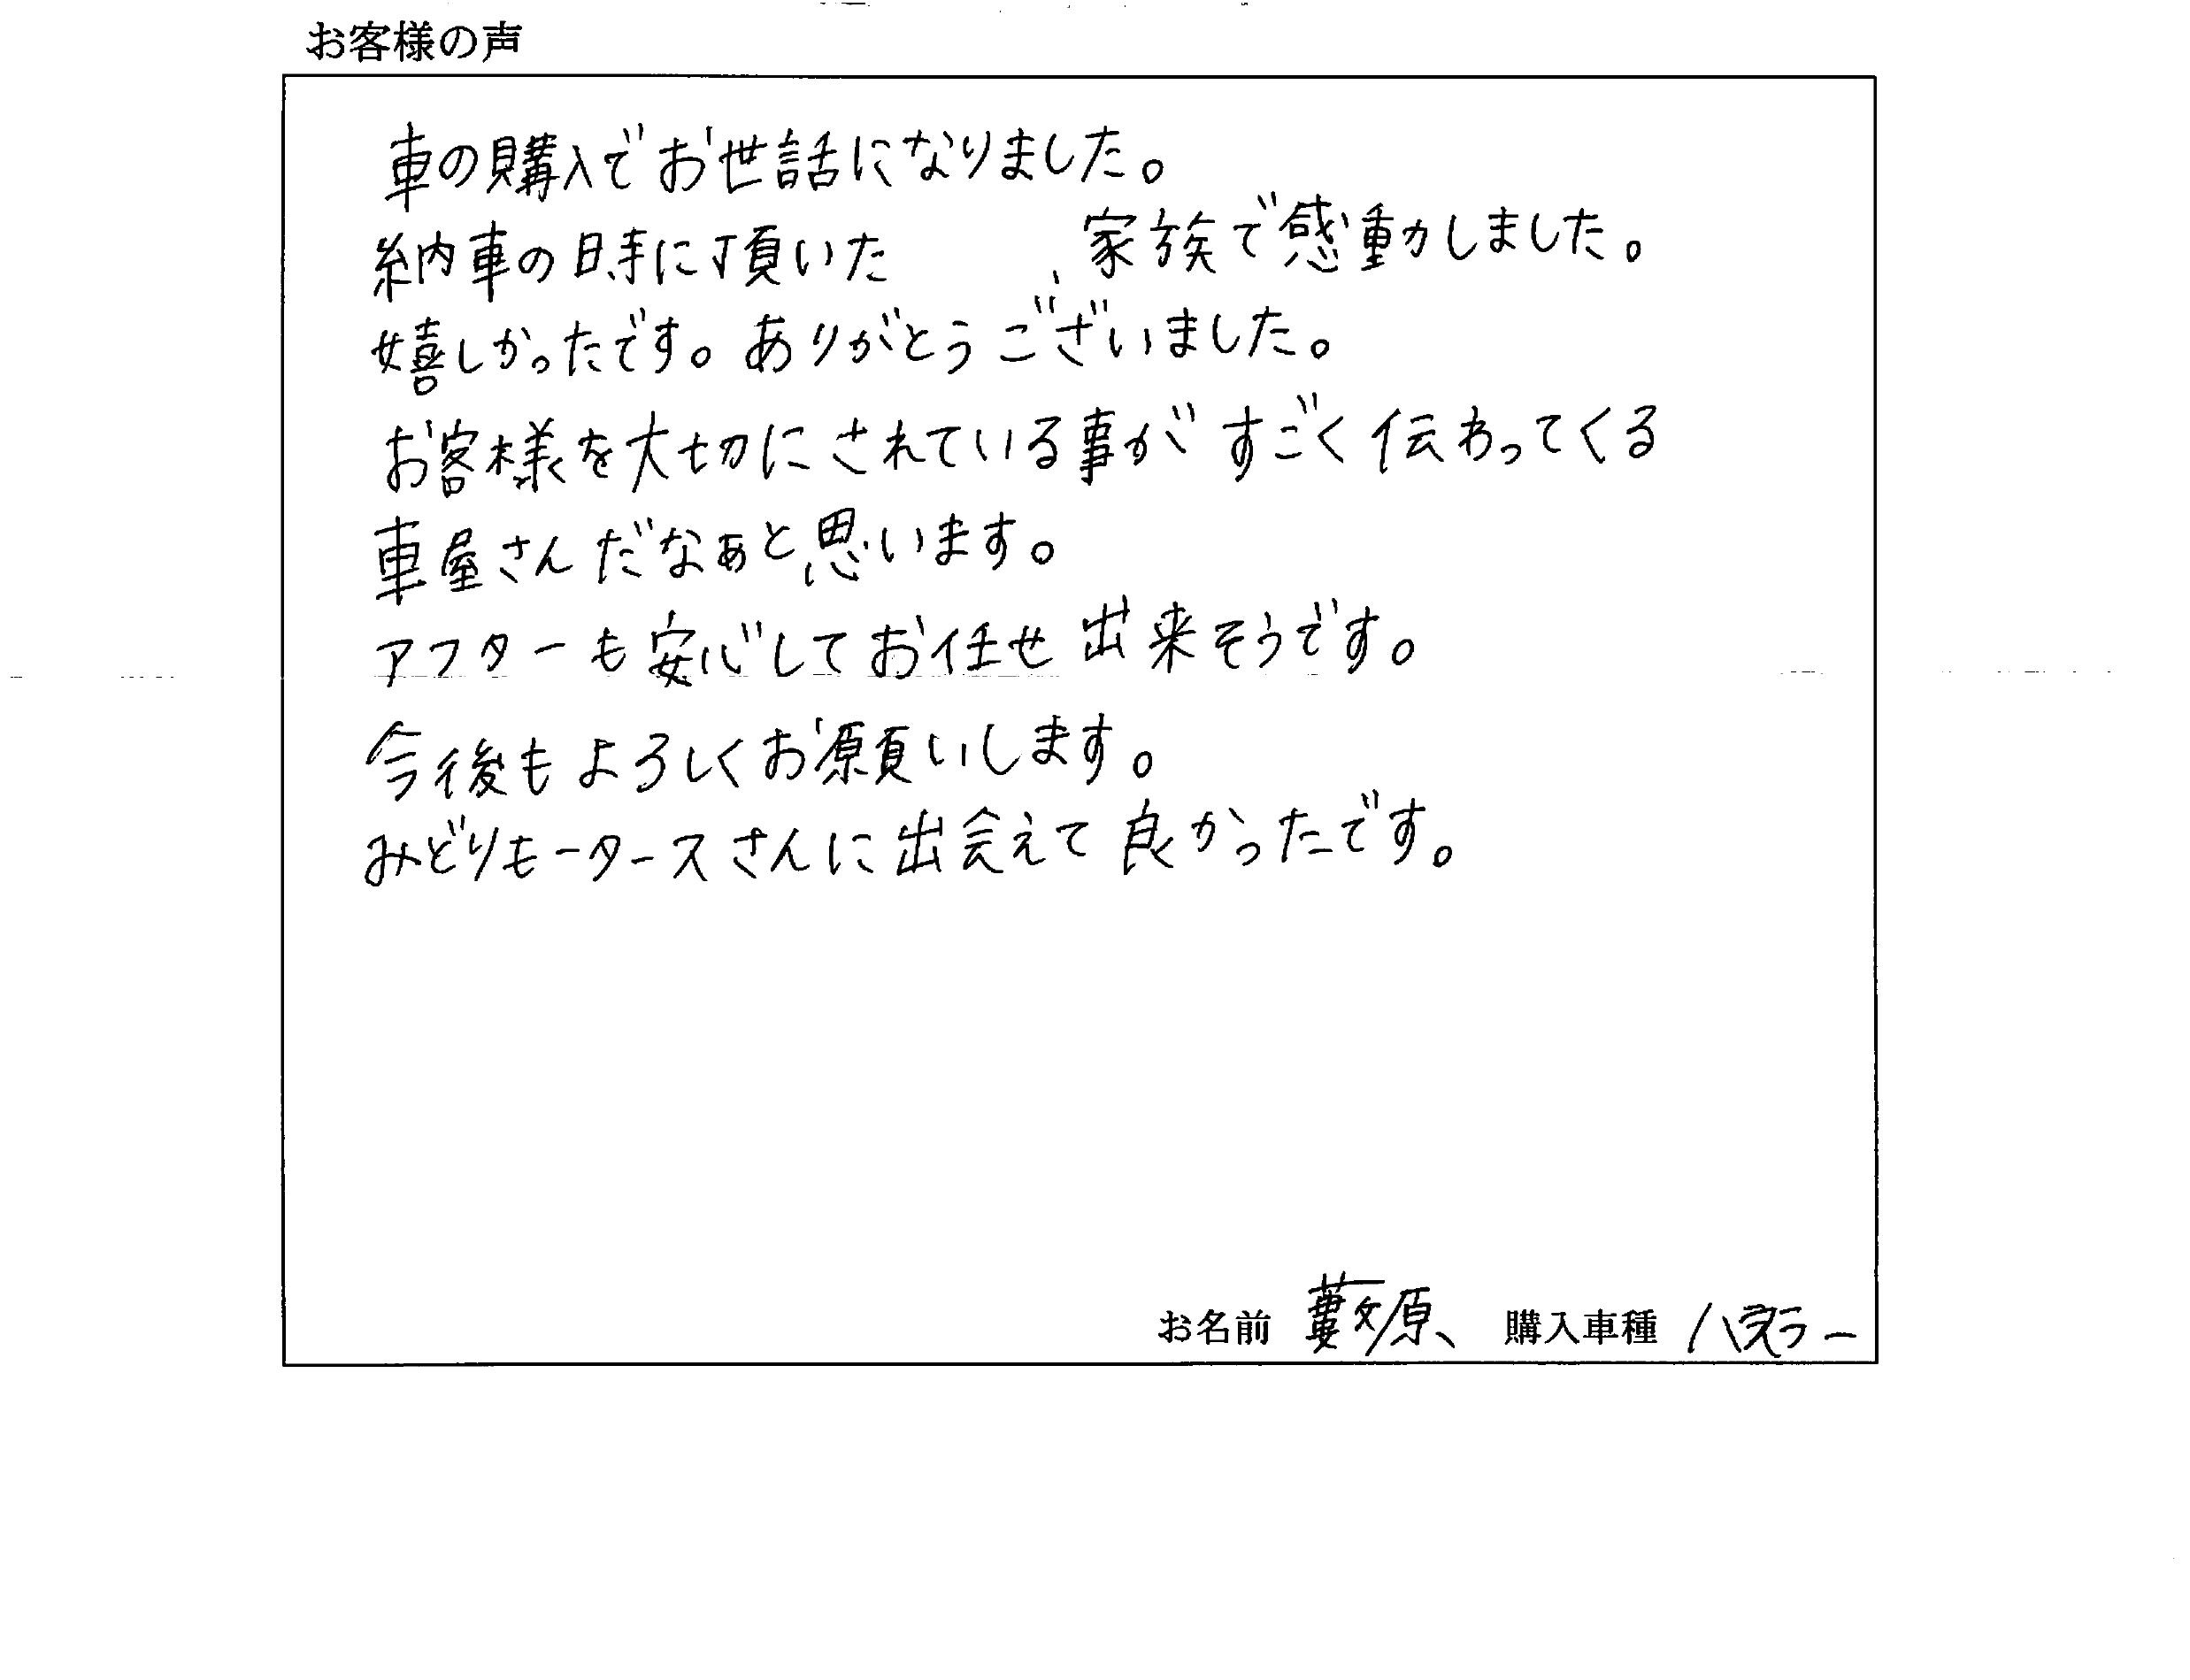 お客様の声
車の購入でお世話になりました。
納車の時に頂いた 、家族で感動しました。
嬉しかったです。ありがとうございました。
お客様を大切にされている事がすごく伝わってくる
車屋さんだなぁと思います。
アフターも安心してお任せ出来そうです。
今後もよろしくお願いします。
みどりモータースさんに出会えて良かったです。
お名前 藪原、 購入車種 ハスラー